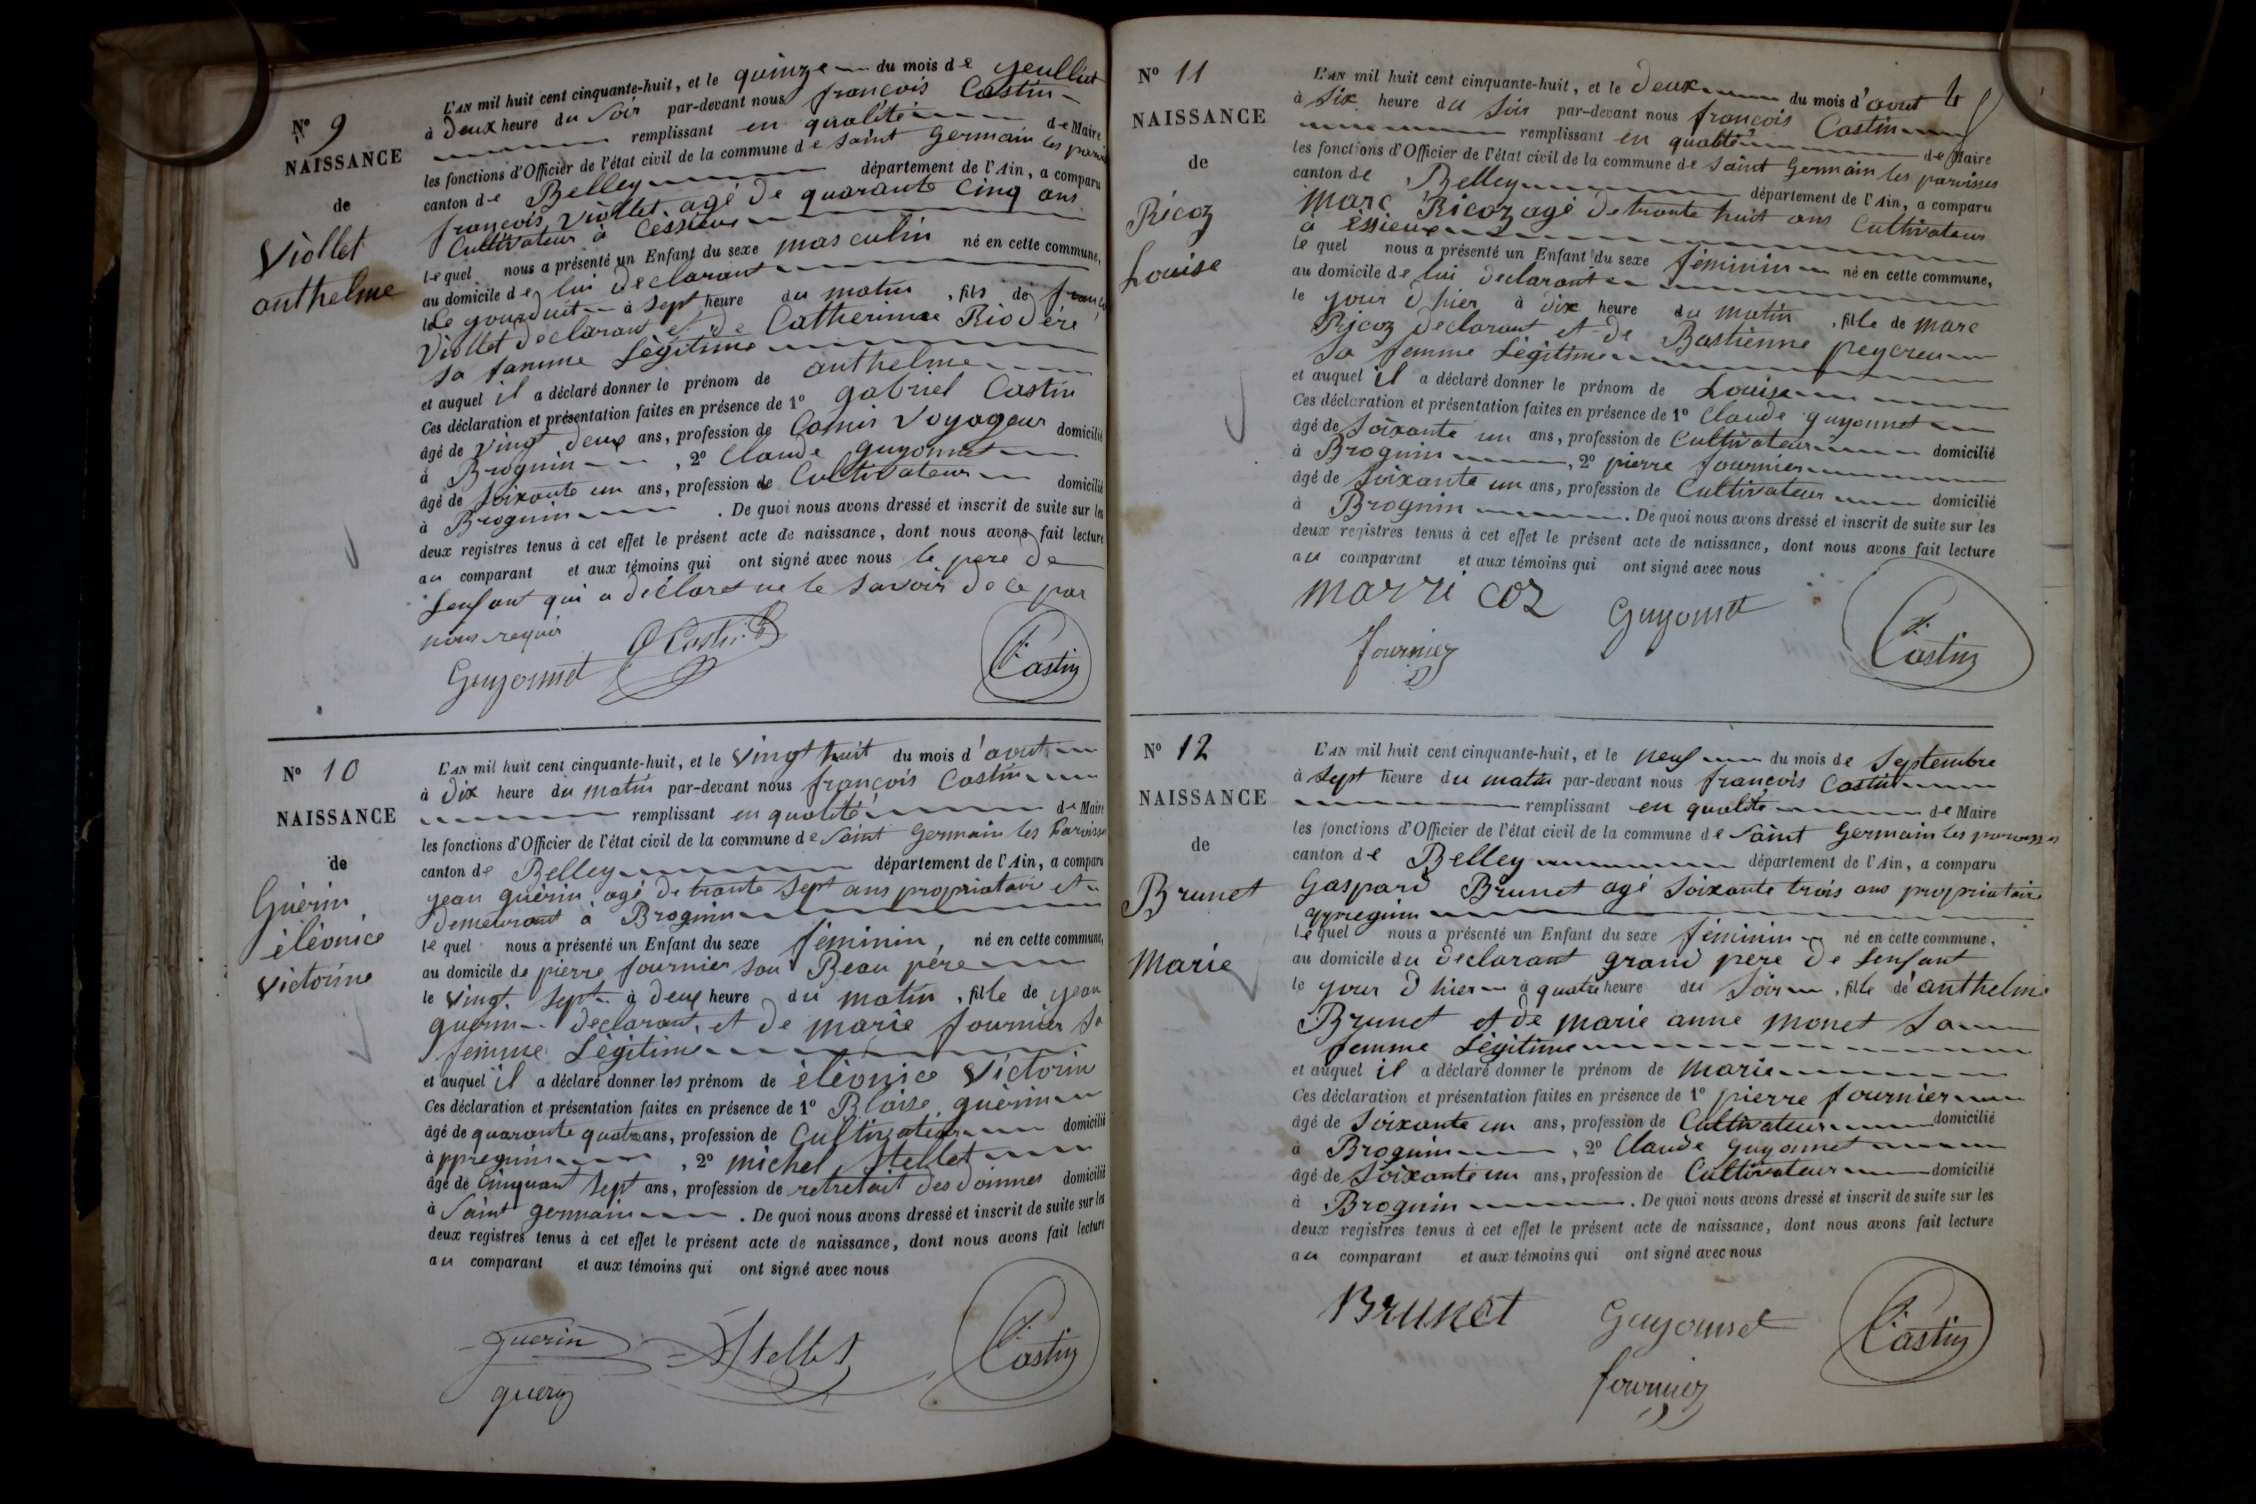 Nº 9
NAISSANCE
de
Viollet
anthelme
L'AN mil huit cent cinquante-huit, et le quinze du mois de jeulliet
à Deux heure du Soir par-devant nous françois Castin
remplissant en qualité de Maire
les fonctions d'Officier de l'état civil de la commune de saint Germain les parois
canton de Belley département de l'Ain, a comparu
françois Viollet agé de quarante Cinq ans
Cultivateur à Cessieux
le quel nous a présenté un Enfant du sexe masculin né en cette commune,
au domicile de lui declarant
le jourduit à sept heure du matin, fils de
Viollet declarant et de Catherinne Riodère
sa famme Légitime
et auquel il a déclaré donner le prénom de anthelme
Ces déclaration et présentation faites en présence de 1º gabriel Castin
âgé de vingt deux ans, profession de Comis Voyageur domicilié
à Brognin, 2º Claude guyonnet
âgé de soixante un ans, profession de Cultivateur domicilié
à Brognin. De quoi nous avons dressé et inscrit de suite sur les
deux registres tenus à cet effet le présent acte de naissance, dont nous avons fait lecture
au comparant et aux témoins qui ont signé avec nous le pere de
Lenfant qui a déclaret ne le savoir de ce par
nous requis
G Castin
Guyonnet
F. Castin
Nº 10
NAISSANCE
de
Guérin
éléonice
victorine
L'AN mil huit cent cinquante-huit, et le vingt huit du mois d'avut
à dix heure du matin par-devant nous françois Castin
remplissant en qualité de Maire
les fonctions d'Officier de l'état civil de la commune de saint Germain les Paroisses
canton de Belley département de l'Ain, a comparu
jean guérin agé de trante sept ans propriataire et
demeurant à Brognin
le quel nous a présenté un Enfant du sexe féminin, né en cette commune,
au domicile de pierre fournier son Beau père
le vingt sept à deux heure du matin, fille de jean
guérin declarant, et de marie fournier sa
femme Légitime
et auquel il a déclaré donner les prénom de éléonice Victorin
Ces déclaration et présentation faites en présence de 1º Blaise guérin
âgé de quarante quatre ans, profession de Cultivateur domicilié
à ppregnin, 2º michel Stellet
âgé de Cinquant sept ans, profession de retretait des doinnes domicilié
à Saint germain. De quoi nous avons dressé et inscrit de suite sur les
deux registres tenus à cet effet le présent acte de naissance, dont nous avons fait lecture
au comparant et aux témoins qui ont signé avec nous
guerin
Stellet
F. Castin
guerin
Nº 11
NAISSANCE
de
Ricoz
Louise
L'AN mil huit cent cinquante-huit, et le deux du mois d'avut
à six heure du Soir par-devant nous françois Castin
remplissant en qualité de Maire
les fonctions d'Officier de l'état civil de la commune de saint Germain les paroisses
canton de Belley département de l'Ain, a comparu
Marc Ricoz agé de trante huit ans Cultivateur
à éssieux
le quel nous a présenté un Enfant du sexe féminin né en cette commune,
au domicile de lui declarant
le jour d hier à dix heure du matin, fille de marc
Ricoz declarant et de Bastienne peycreu
sa femme Légitime
et auquel il a déclaré donner le prénom de Louise
Ces déclaration et présentation faites en présence de 1º Claude guyonnet
âgé de Soixante un ans, profession de Cultivateur domicilié
à Brognin, 2º pierre fournier
âgé de Soixante un ans, profession de Cultivateur domicilié
à Brognin. De quoi nous avons dressé et inscrit de suite sur les
deux registres tenus à cet effet le présent acte de naissance, dont nous avons fait lecture
au comparant et aux témoins qui ont signé avec nous
marricoz
Guyonnet
F. Castin
fournier
Nº 12
NAISSANCE
de
Brunet
Marie
L'AN mil huit cent cinquante-huit, et le neuf du mois de Septembre
à sept heure du matin par-devant nous françois Castin
remplissant en qualité de Maire
les fonctions d'Officier de l'état civil de la commune de saint Germain les paroisses
canton de Belley département de l'Ain, a comparu
Gaspard Brunet agé Soixante trois ans propriataire
appregnin
le quel nous a présenté un Enfant du sexe féminin né en cette commune,
au domicile du declarant grand père de Lenfant
le jour d hier à quatre heure du Soir, fille de anthelme
Brunet et de marie anne monet sa
femme Légitime
et auquel il a déclaré donner le prénom de marie
Ces déclaration et présentation faites en présence de 1º pierre fournier
âgé de Soixante un ans, profession de Cultivateur domicilié
à Brognin, 2º Claude guyonnet
âgé de Soixante un ans, profession de Cultivateur domicilié
à Brognin. De quoi nous avons dressé et inscrit de suite sur les
deux registres tenus à cet effet le présent acte de naissance, dont nous avons fait lecture
au comparant et aux témoins qui ont signé avec nous
Brunet
Guyonnet
F. Castin
fournier